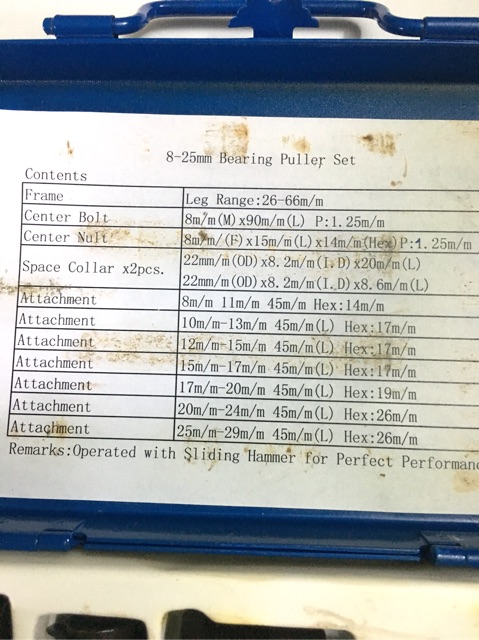 8-25mm Bearing Puller Set
Contents
Frame Leg Range:26-66m/m
Center Bolt 8m/m(M)x90m/m(L) P:1.25m/m
Center Nult 8m/m/(F)x15m/m(L)x14m/m(Hex)P:1.25m/m
Space Collar x2pcs. 22mm/(OD)x8.2m/m(I.D)x20m/m(L)
22mm/(OD)x8.2m/m(I.D)x8.6m/m(L)
Attachment 8m/m 11m/m 45m/m Hex:14m/m
Attachment 10m/m-13m/m 45m/m(L) Hex:17m/m
Attachment 12m/m-15m/m 45m/m(L) Hex:17m/m
Attachment 15m/m-17m/m 45m/m(L) Hex:17m/m
Attachment 17m/m-20m/m 45m/m(L) Hex:19m/m
Attachment 20m/m-24m/m 45m/m(L) Hex:26m/m
Attachment 25m/m-29m/m 45m/m(L) Hex:26m/m
Remarks:Operated with Sliding Hammer for Perfect Performanc